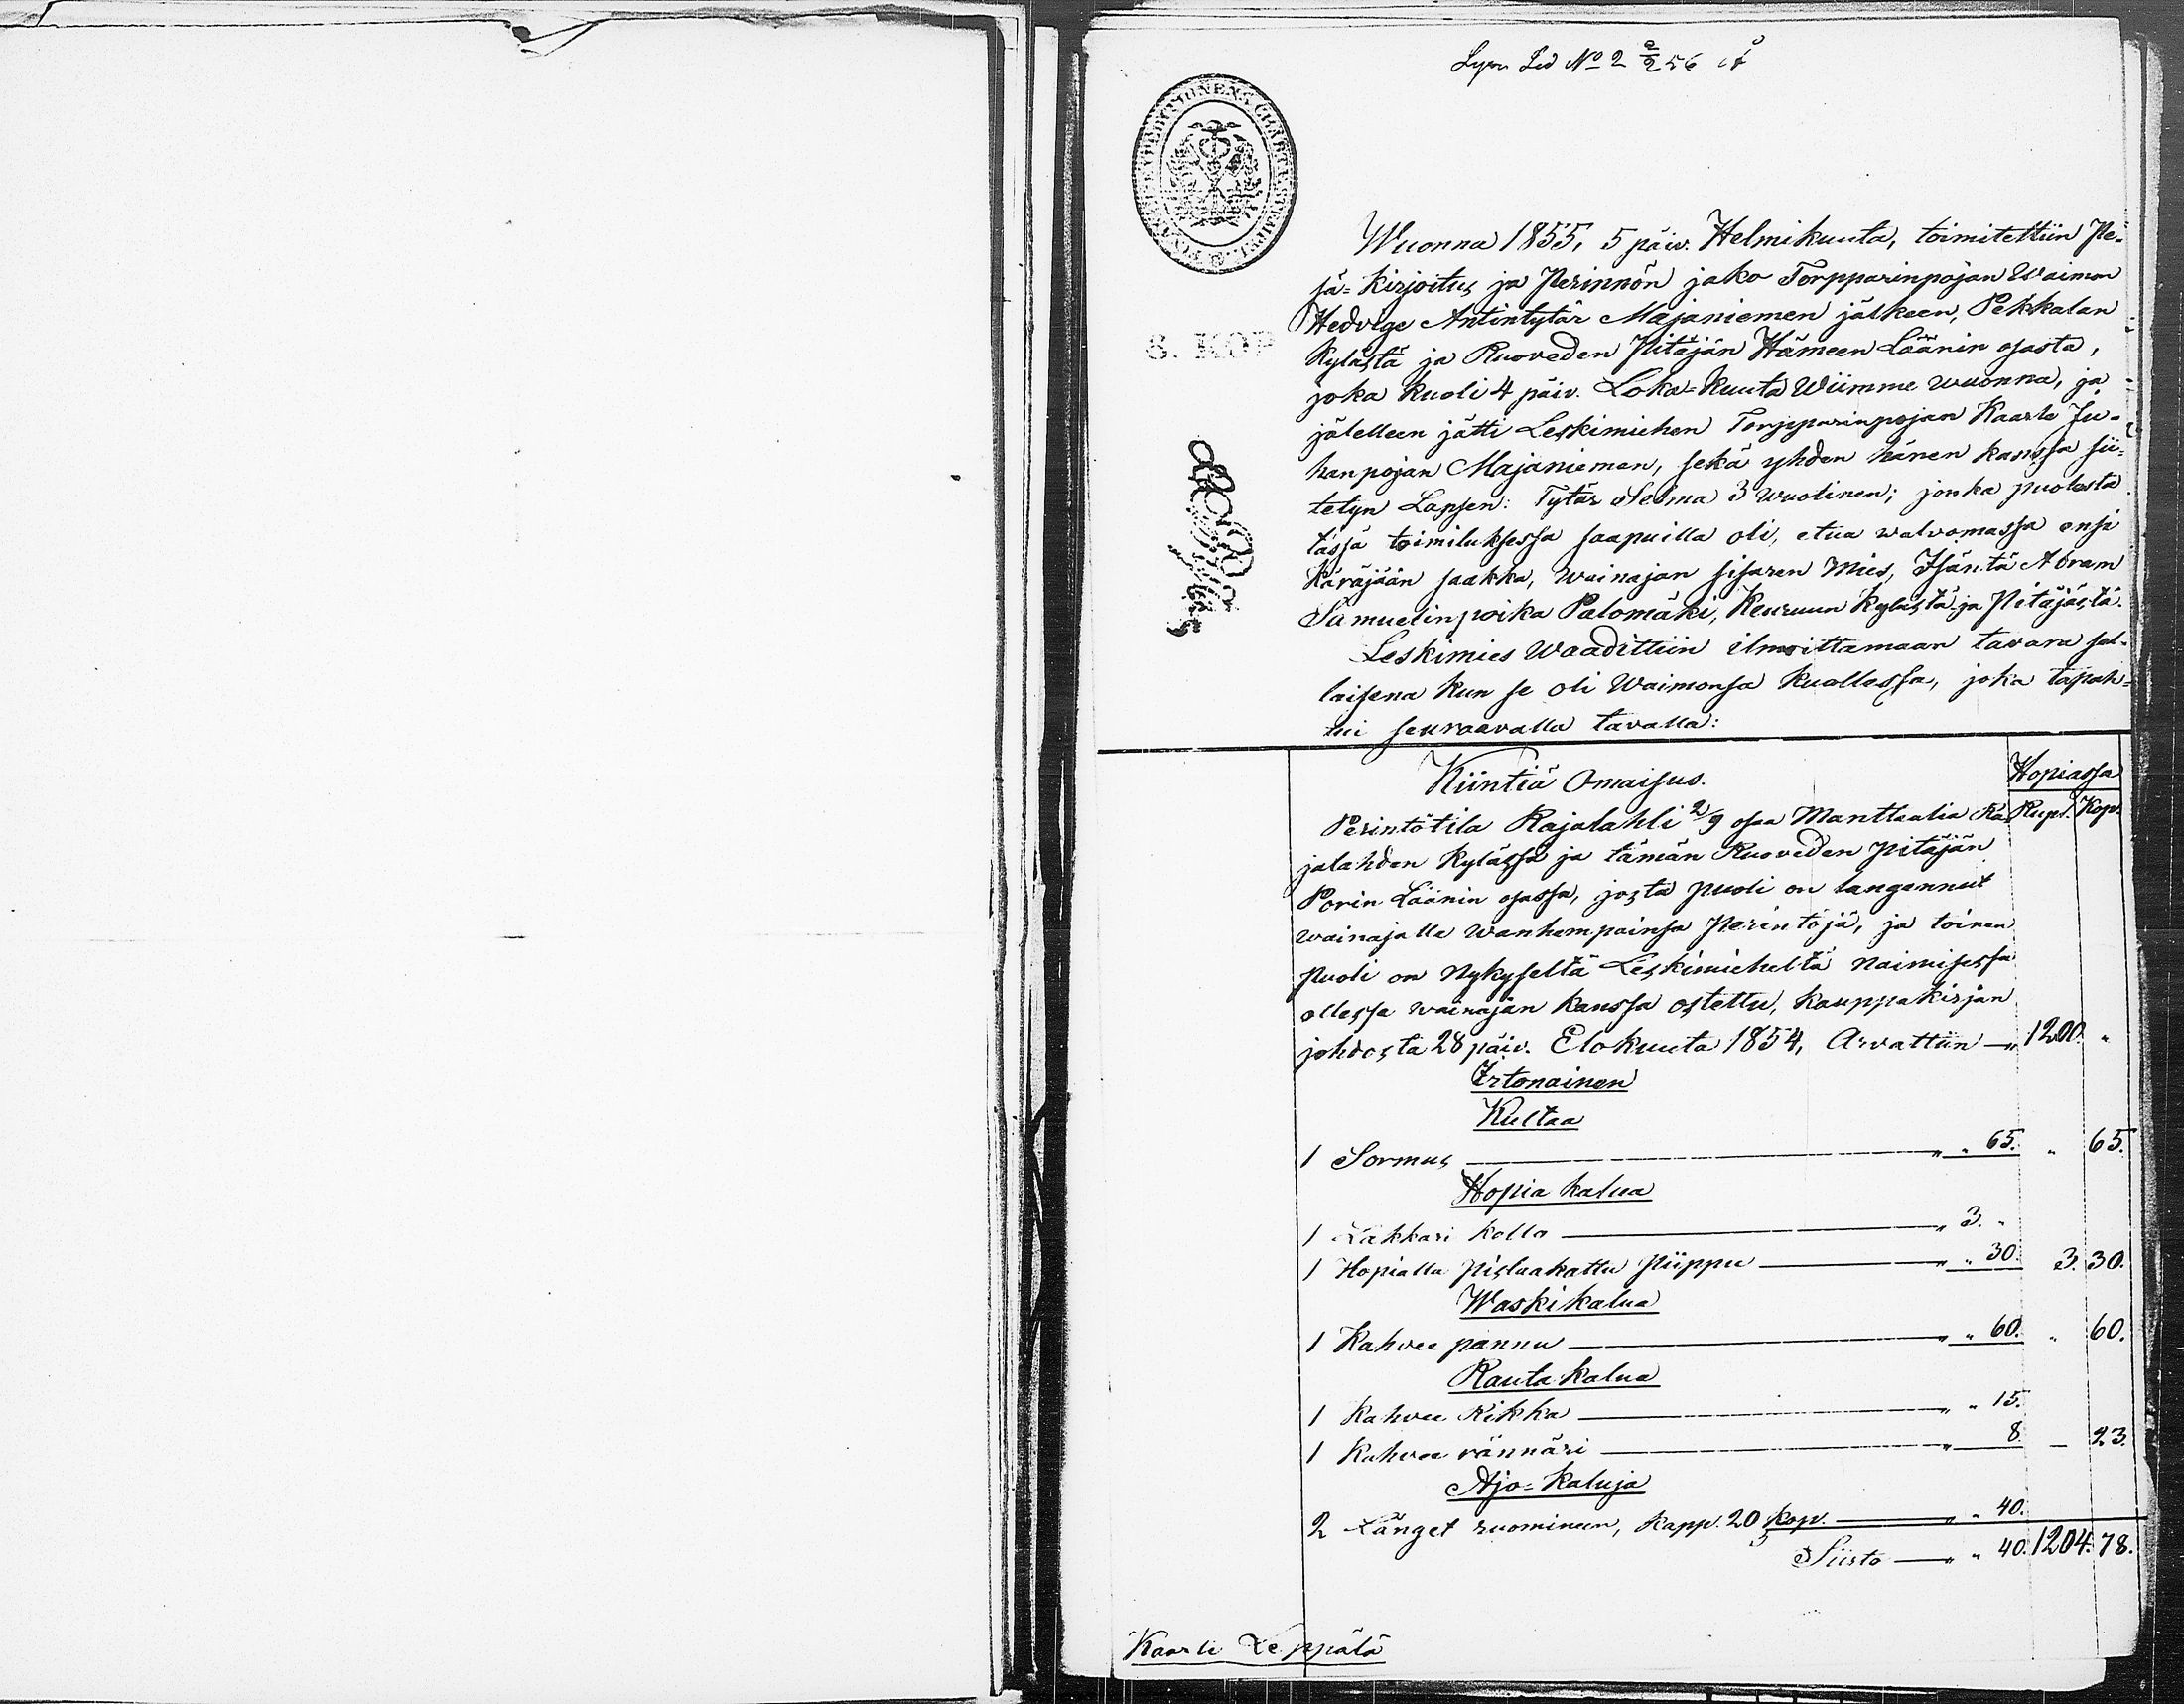 Wuonna 1855, 5 päiv. Helmikuuta, toimitettiin Pe-
sä=Kirjoitus ja Perinnön jako Torpparinpojan Waimon
Hedvige Antintytär Majaniemen jälkeen, Pekkalan
Kylästä ja Ruoveden Pitäjän Hämeen Läänin osasta,
joka kuoli 4 päiv. Loka=Kuuta Wiimme wuonna, ja
jälelleen jätti Leskimiehen Torpparinpojan Kaarle Ju-
hanpojan Majaniemen, sekä yhden hänen kanssa sii-
tetyn Lapsen: Tytär Selma 3 wuotinen; jonka puolesta
tässä toimituksessa saapuilla oli, etua walvomassa ensi
Käräjään saakka, wainajan sisaren Mies, Isäntä Abram
Samuelinpoika Palomäki, Keuruun Kylästä ja Pitäjästä.
Leskimies Waadittiin ilmoittamaan tavara sel-
laisena kun se oli Waimonsa kuollessa, joka tapah-
tui seuraavalla tavalla:
Kiintiä Omaisus.
Hopiassa
Rupl. Kop.
Perintötila Rajalahti 2/9 osaa Manttaalia Ra-
jalahden Kylässä ja tämän Ruoveden pitäjän
Porin Läänin osassa, josta puoli on langennut
wainajalle wanhempainsa Perintöjä, ja toinen
puoli on Nykyseltä Leskimieheltä naimisessa
ollessa wainajan kanssa ostettu, kauppakirjan
johdosta 28 päiv. Elokuuta 1854, Arvattiin — 1200. "
Irtonainen
Kultaa
1 Sormus — " " 65. " 65.
Hopia kalua
1 Läkkari kollo — " 3. "
1 Hopialla pislaakattu Piippu — " " 30. 3. 30.
Waskikalua
1 Kahvee pannu — " " 60. " 60.
Rauta kalua
1 Kahvee Kikka — " " 15.
1 Kahvee rännäri — " 8. — 23.
Ajo=Kaluja
2 Länget ruomineen, kapp. 20 kop. — " " 40.
Siirto — " " 40. 1204. 78.
Kaarle Leppälä
8. KOP